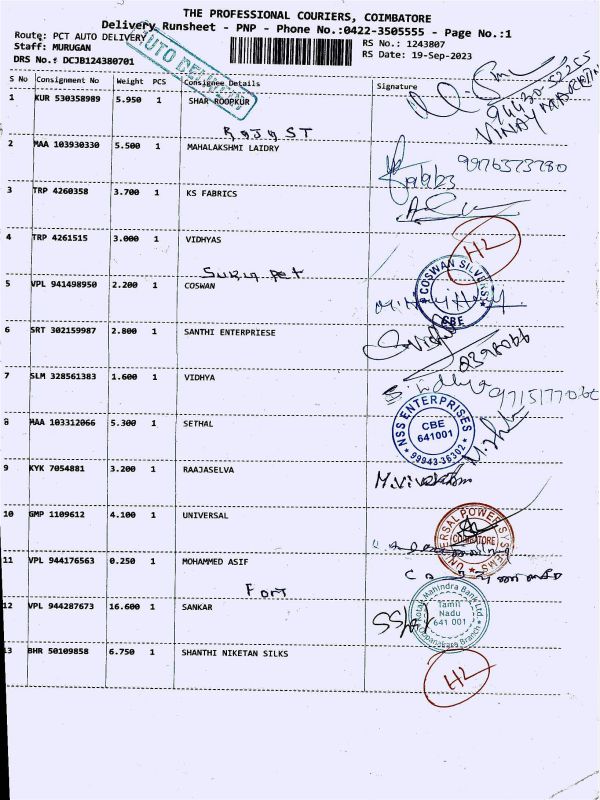 THE PROFESSIONAL COURIERS, COIMBATORE
Delivery Runsheet - PNP - Phone No.:0422-3505555 - Page No.:1
Route: PCT AUTO DELIVERY
RS No.: 1243807
Staff: MURUGAN
RS Date: 19-Sep-2023
DRS No.: DCJB124380701
AUTO DELIVERY
S No Consignment No Weight PCS Consignee Details Signature
1 KUR 530358989 5.950 1 SHAR ROOPKUR
94430 52255
Raja ST
2 MAA 103930330 5.500 1 MAHALAKSHMI LAIDRY
9976373780
3 TRP 4260358 3.700 1 KS FABRICS
4 TRP 4261515 3.000 1 VIDHYAS
H2
5 VPL 941498950 2.200 1 COSWAN
COSWAN SILVERS
CBE
6 SRT 302159987 2.800 1 SANTHI ENTERPRIESE
7 SLM 328561383 1.600 1 VIDHYA
8 MAA 103312066 5.300 1 SETHAL
NSS ENTERPRISES
CBE
641001
99943-36302
9 KYK 7054881 3.200 1 RAAJASELVA
10 GMP 1109612 4.100 1 UNIVERSAL
UNIVERSAL POWER SYSTEMS
COIMBATORE
11 VPL 944176563 0.250 1 MOHAMMED ASIF
Fort
12 VPL 944287673 16.600 1 SANKAR
Kotak Mahindra Bank Ltd.
Tamil
Nadu
641 001
Branch
13 BHR 50109858 6.750 1 SHANTHI NIKETAN SILKS
H2